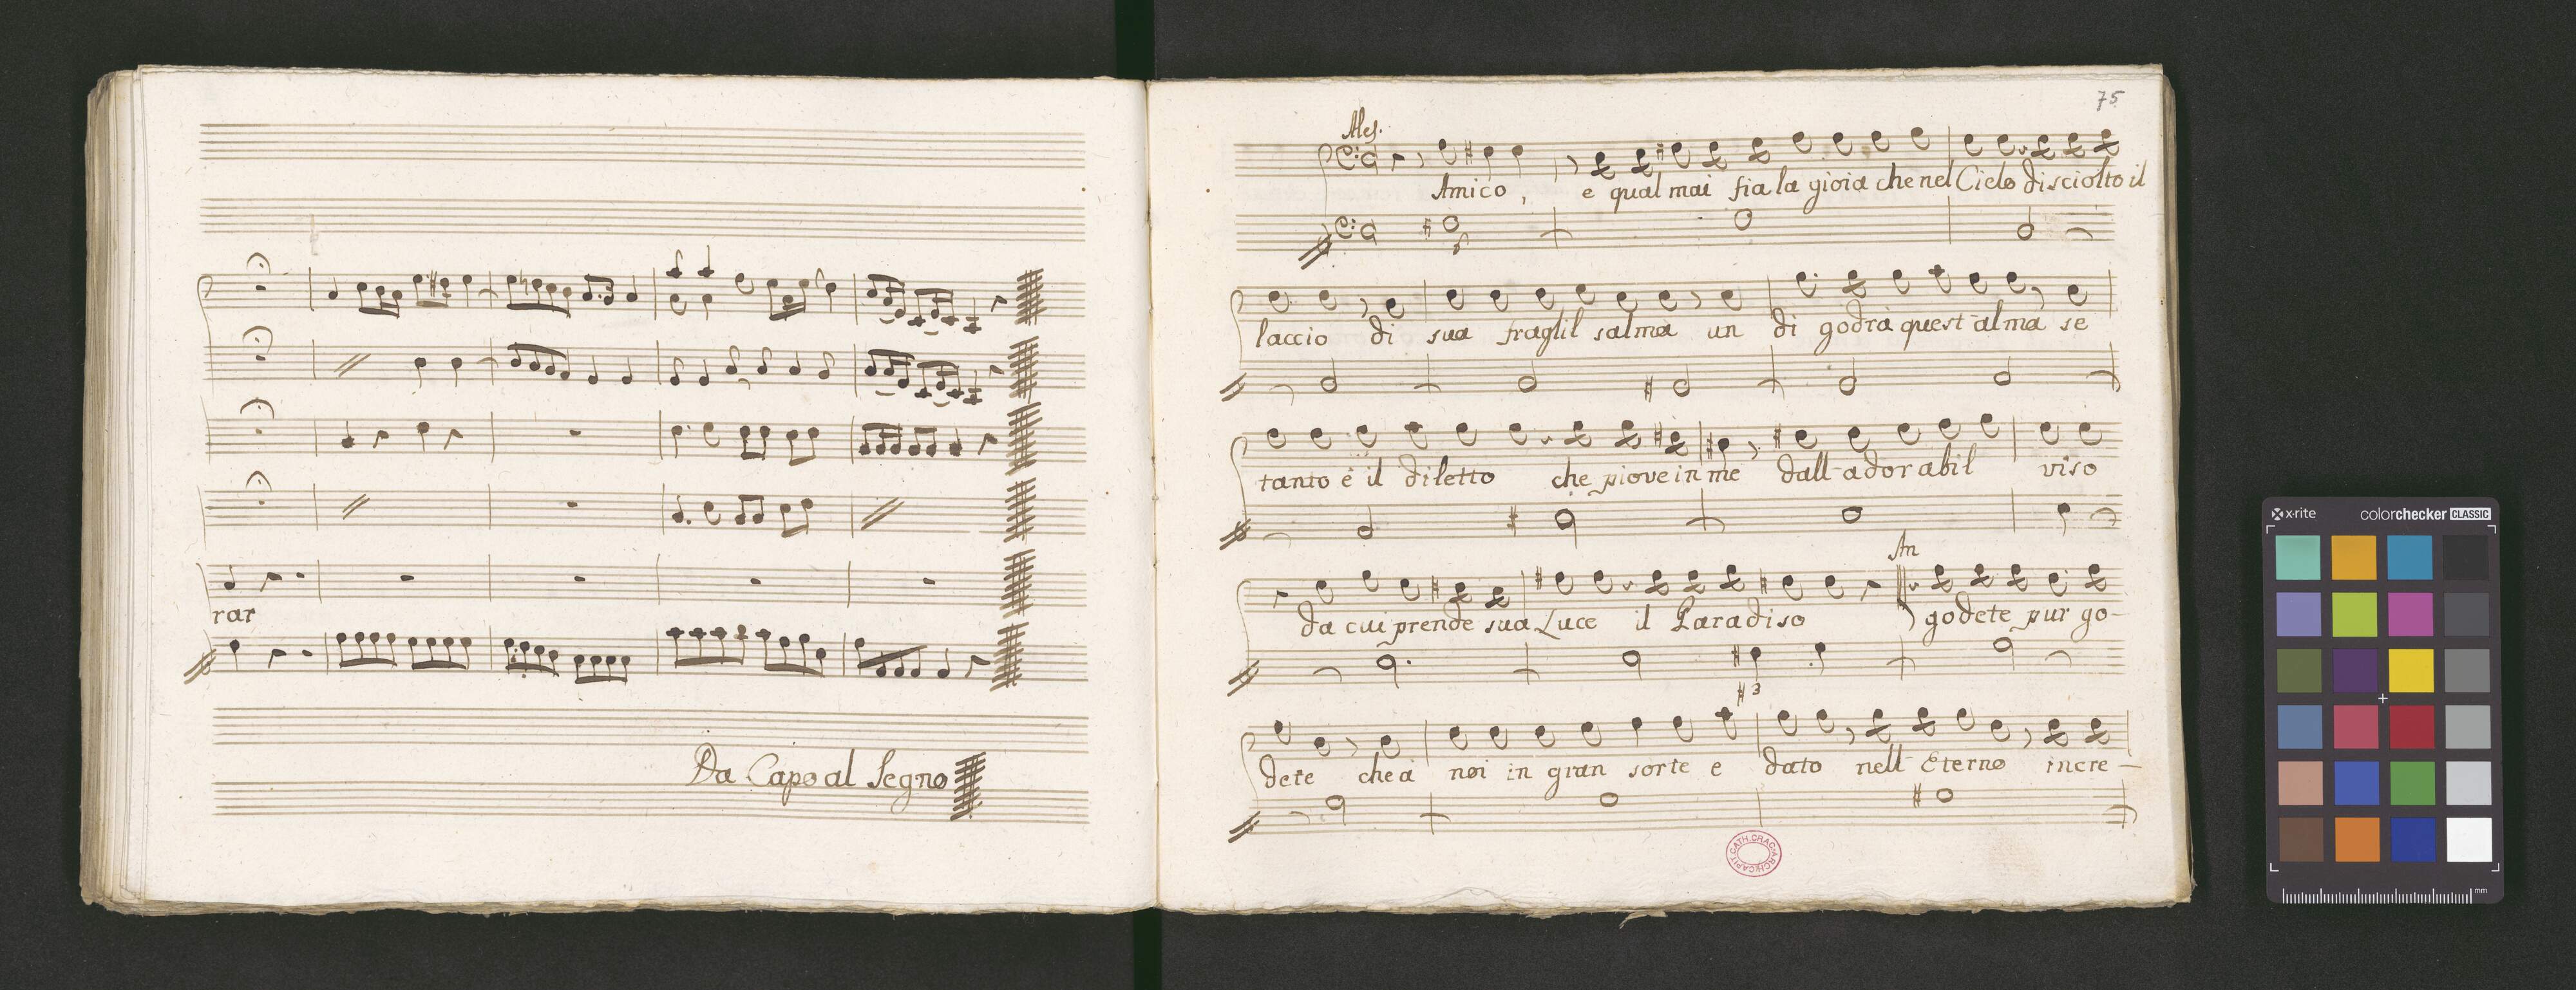 rar
Da Capo al Segno
75
Ales.
Amico, e qual mai fia la gioia che nel Cielo disciolto il
laccio di sua fraglil salma un di godrà quest-alma se
tanto è il diletto che piove in me dall-adorabil viso
An
da cui prende sua Luce il Paradiso godete pur go-
♯3
dete che à noi in gran sorte e dato nell-Eterno incre-
ARCH. CAPIT. CATH. CRAC.
x-rite
colorchecker CLASSIC
mm